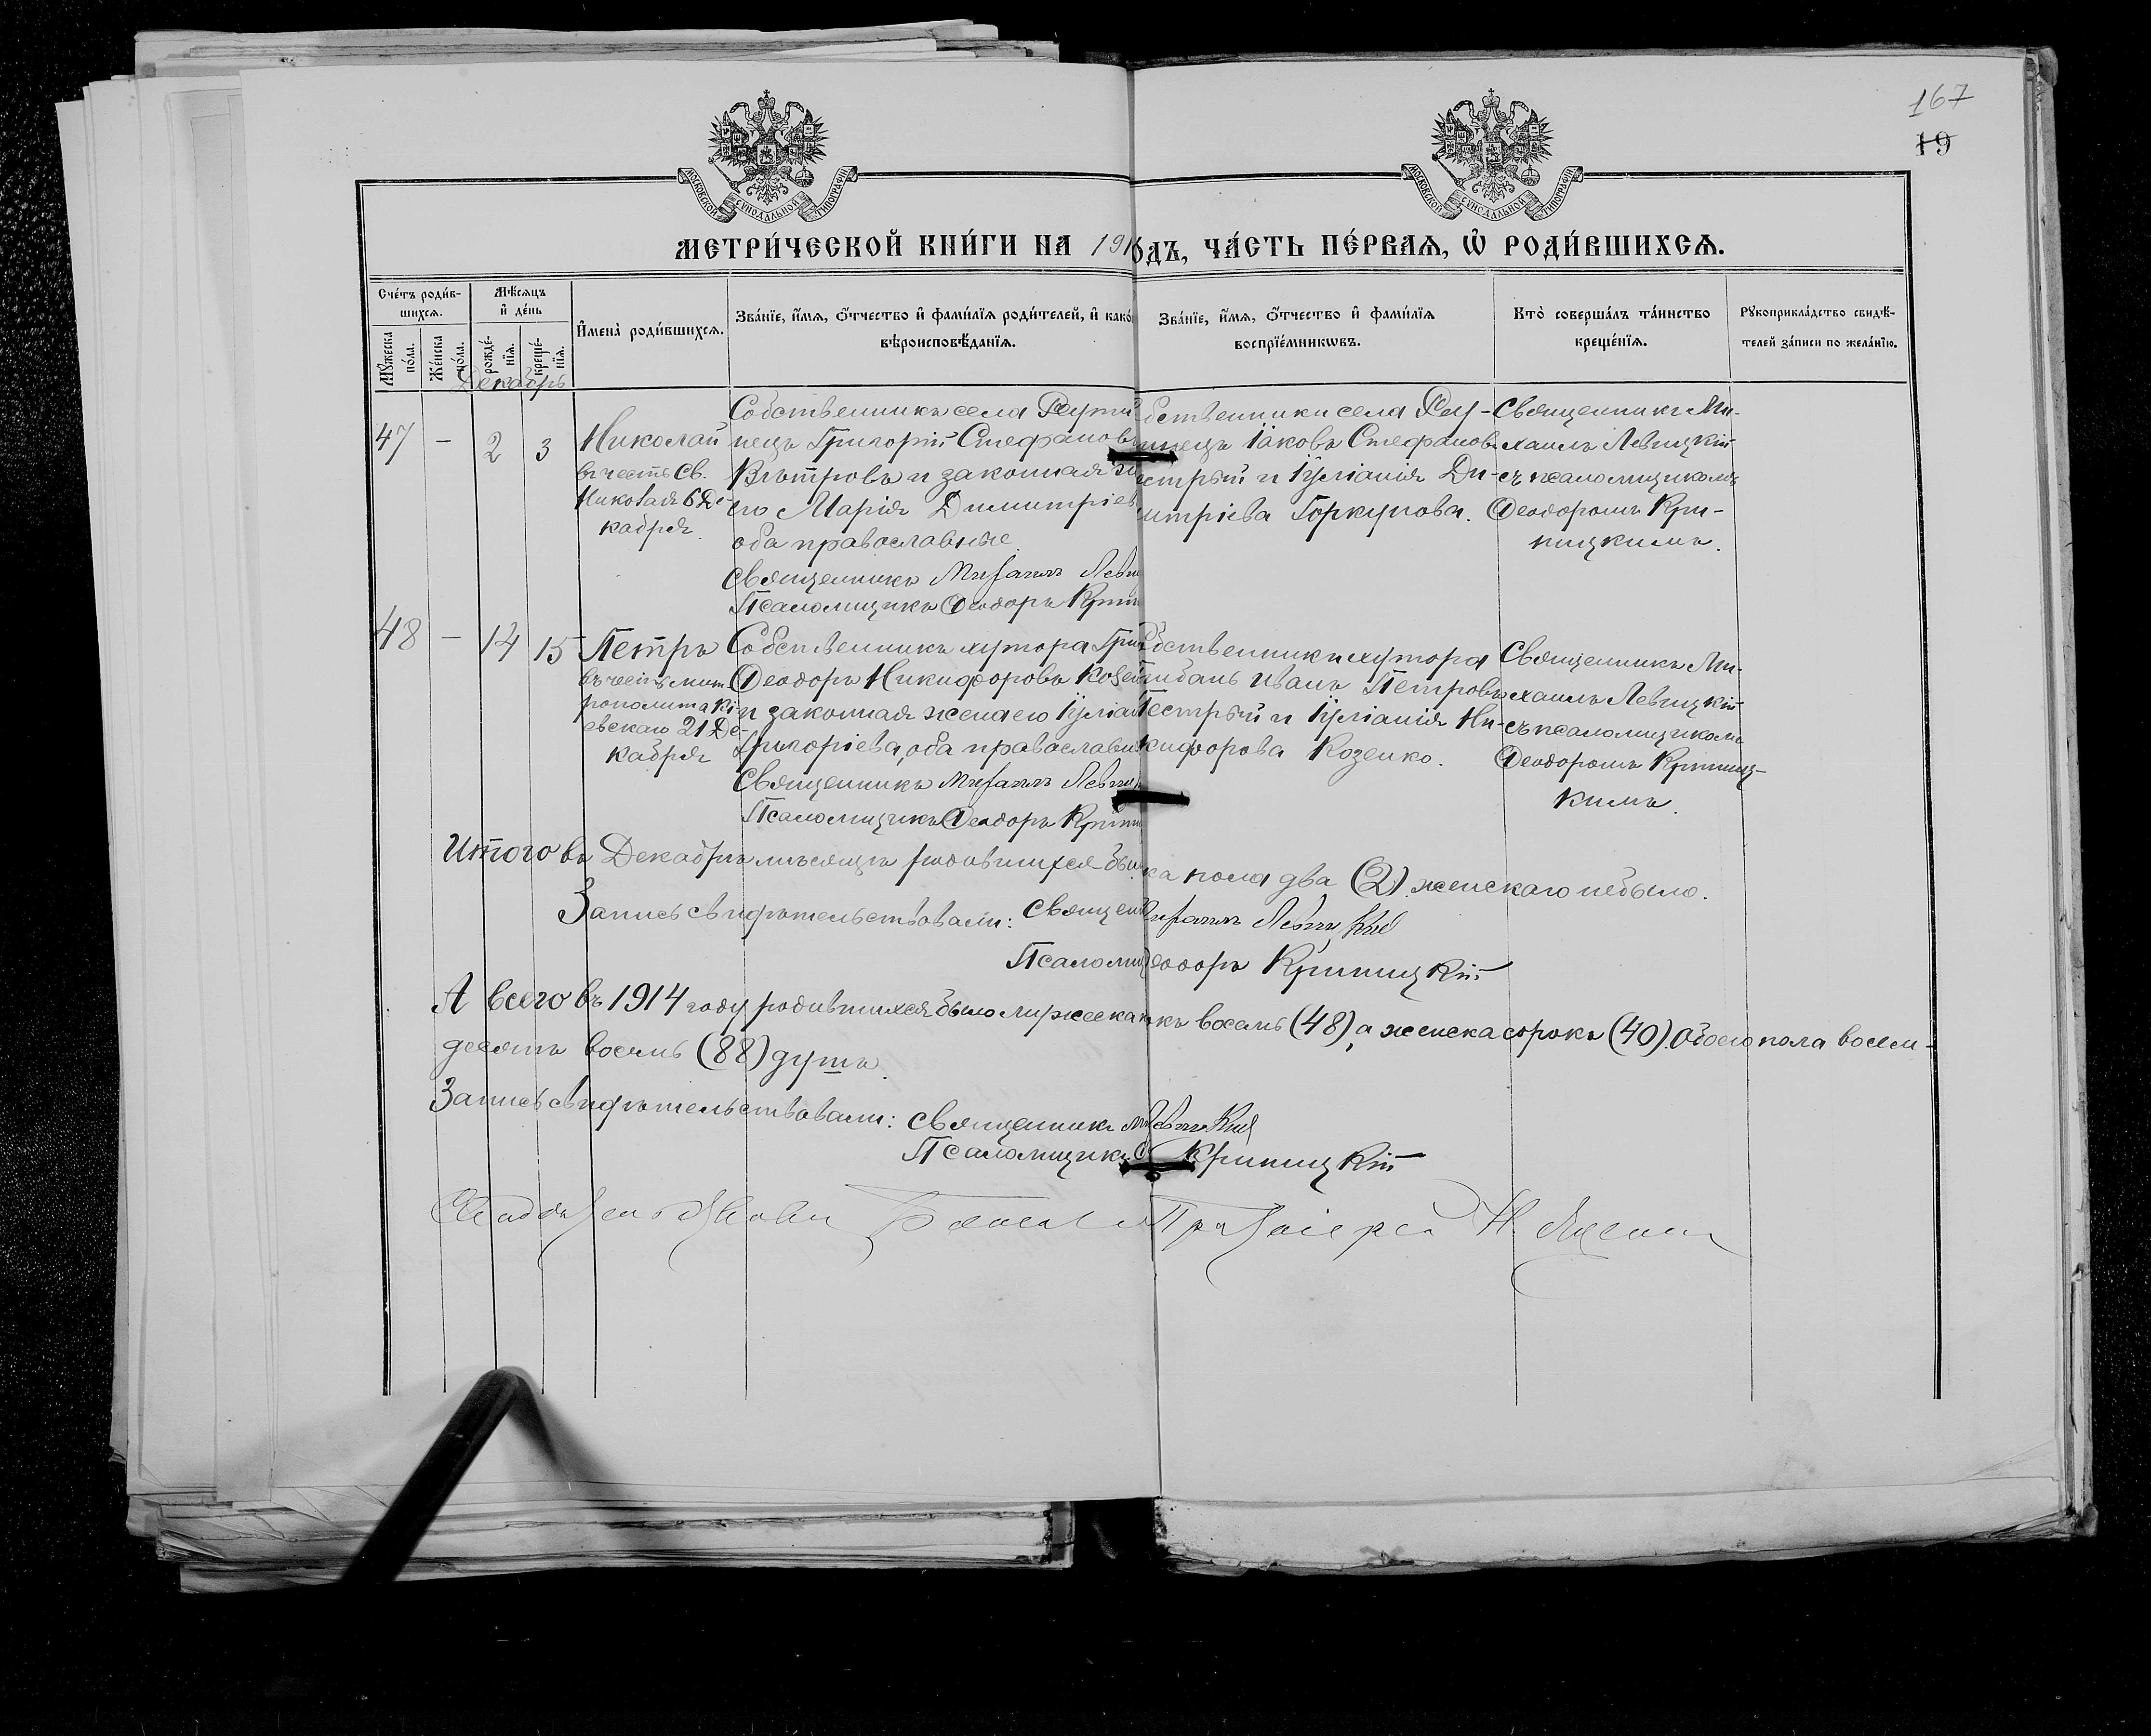 167
19
МОСКОВСКОЙ СѴНОДАЛЬНОЙ ТИПОГРАФІИ
МОСКОВСКОЙ СѴНОДАЛЬНОЙ ТИПОГРАФІИ
МЕТРИ́ЧЕСКОЙ КНИ́ГИ НА 191
ОДЪ, ЧА́СТЬ ПЕ́РВАѦ, Ѡ҆ РОДИ́ВШИХСѦ.
Сче́тъ роди́в-
шихсѧ.
Мѣ́сѧцъ
и҆ де́нь
Мꙋ́жеска
по́ла.
Же́нска
по́ла.
рожде́-
нїѧ.
креще́-
нїѧ.
И҆мена̀ роди́вшихсѧ.
Зва́нїе, и҆́мѧ, ѻ҆́тчество и҆ фами́лїѧ роди́телей, и҆ како́
вѣроисповѣ́данїѧ.
Зва́нїе, и҆́мѧ, ѻ҆́тчество и҆ фами́лїѧ
воспрїе́мникѡвъ.
Кто̀ соверша́лъ та́инство
креще́нїѧ.
Рꙋкоприкла́дство свидѣ́-
телей за́писи по жела́нїю.
Декабрь
47 — 2 3
Николай
въ честь Св.
Николая 6 Де-
кабря.
Собственникъ села
нецъ Григорій Стефановъ
Вѣтровъ и законная
его Марія Димитріев
оба православные.
Священникъ Михаилъ Леви
Псаломщикъ Ѳеодоръ Крин
бственники села
нецъ Іаковъ Стефановъ
стрый и Іуліанія Ди-
митріева Горкунова.
Священникъ Ми-
хаилъ Левицкій
съ псаломщикомъ
Ѳеодоромъ Кри-
ницкимъ.
48 — 14 15
Петръ
въ честь мит-
рополита Кі-
евскаго 21 Де-
кабря
Собственникъ хутора
Ѳеодоръ Никифоровъ Козен
и законная жена его Іуліан
Григоріева, оба православн
Священникъ Михаилъ Левиц
Псаломщикъ Ѳеодоръ Крини
бственники хутора
Иванъ Петровъ
Пестрый и Іуліанія Ни-
кифорова Козенко.
Священникъ Ми-
хаилъ Левицкій
съ псаломщикомъ
Ѳеодоромъ Криниц-
кимъ.
Итого въ Декабрѣ мѣсяцѣ родившихся бы
ка пола два (2). женскаго небыло.
Запись свидѣтельствовали: Священ
ихаилъ Левицкій
Псаломщ
еодоръ Криницкій
А всего въ 1914 году родившихся было мужеска
къ восемь (48), а женска сорокъ (40). Обоего пола восем-
десятъ восемь (88) душъ.
Запись свидѣтельствовали: Священникъ М
Левицкій
Псаломщикъ Ѳ
Криницкій